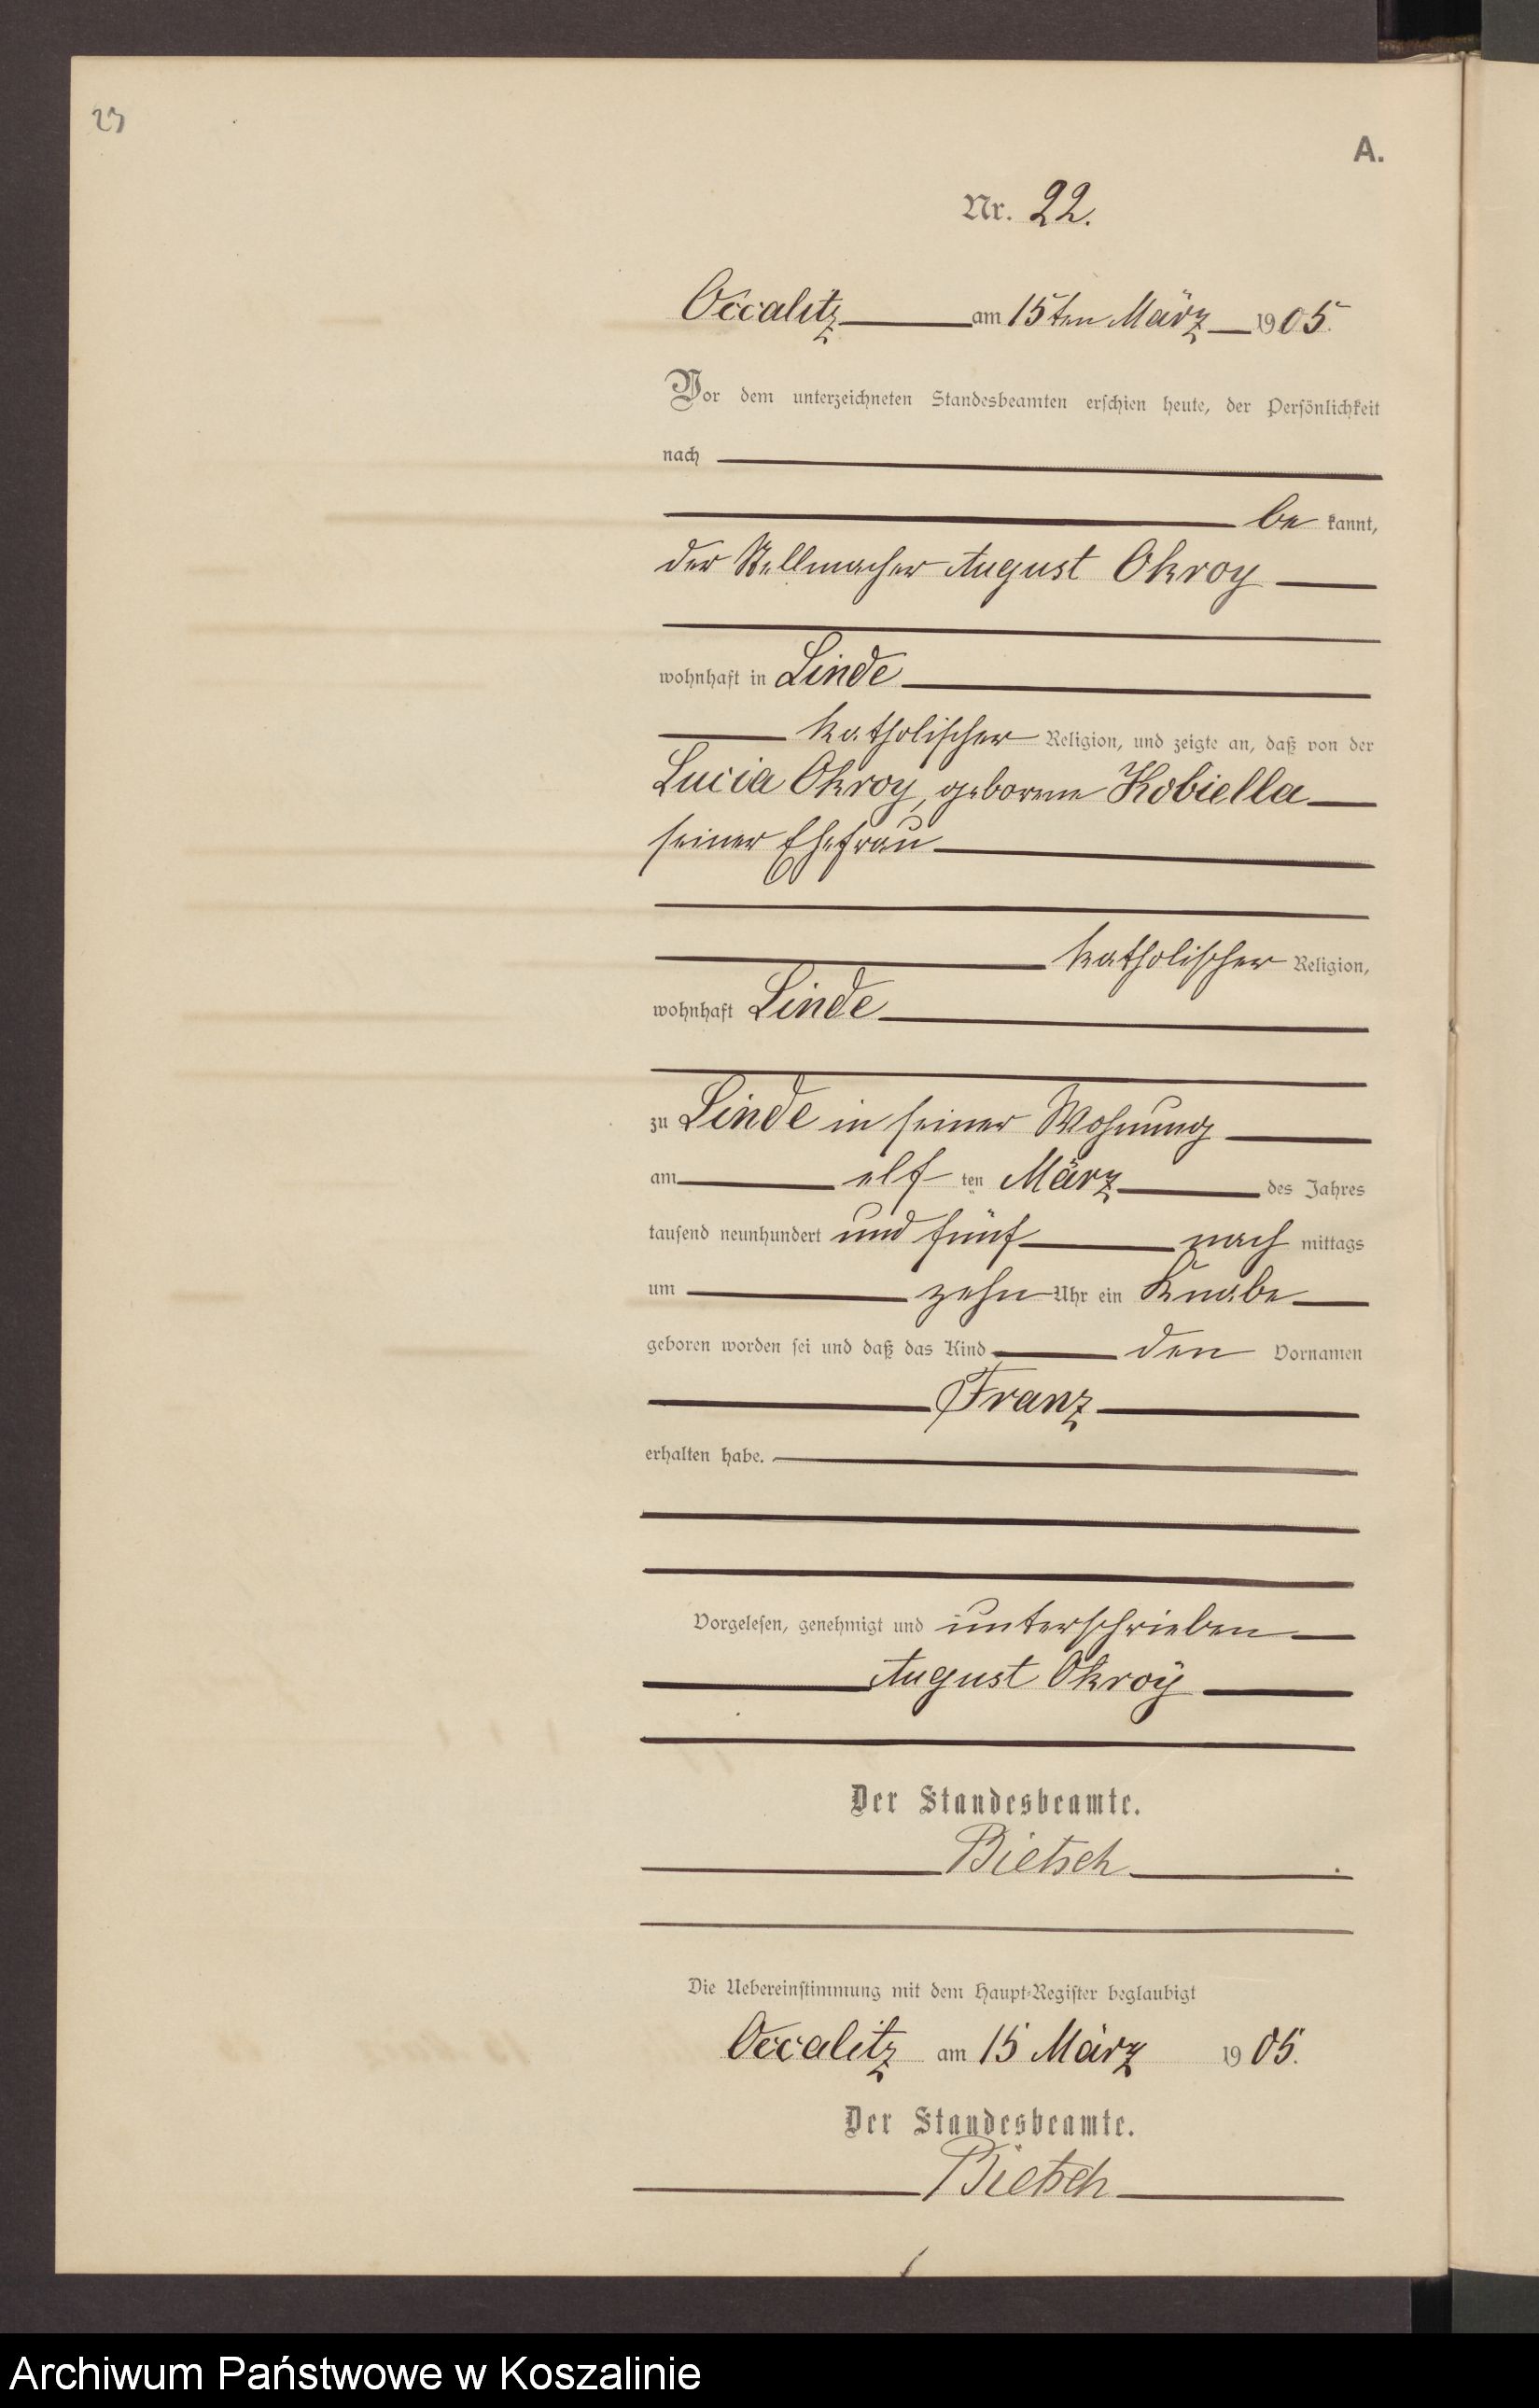 23
A.
Nr. 22.
Occalitz am 15ten März 1905.
Vor dem unterzeichneten Standesbeamten erschien heute, der Persönlichkeit
nach
be kannt,
der Stellmacher August Okroy
wohnhaft in Linde
katholischer Religion, und zeigte an, daß von der
Lucia Okroy, geborene Kobiella
seiner Ehefrau
katholischer Religion,
wohnhaft Linde
zu Linde in seiner Wohnung
am elf ten März des Jahres
tausend neunhundert und fünf nach mittags
um zehn Uhr ein Knabe
geboren worden sei und daß das Kind den Vornamen
Franz
erhalten habe.
Vorgelesen, genehmigt und unterschrieben
August Okroÿ
Der Standesbeamte.
Bietsch
Die Uebereinstimmung mit dem Haupt-Register beglaubigt
Occalitz am 15 März 1905.
Der Standesbeamte.
Bietsch
Archiwum Państwowe w Koszalinie